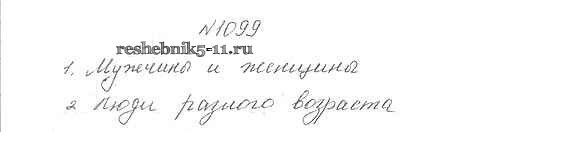 №1099
reshebnik5-11.ru
1. Мужчины и женщины
2 Люди разного возраста